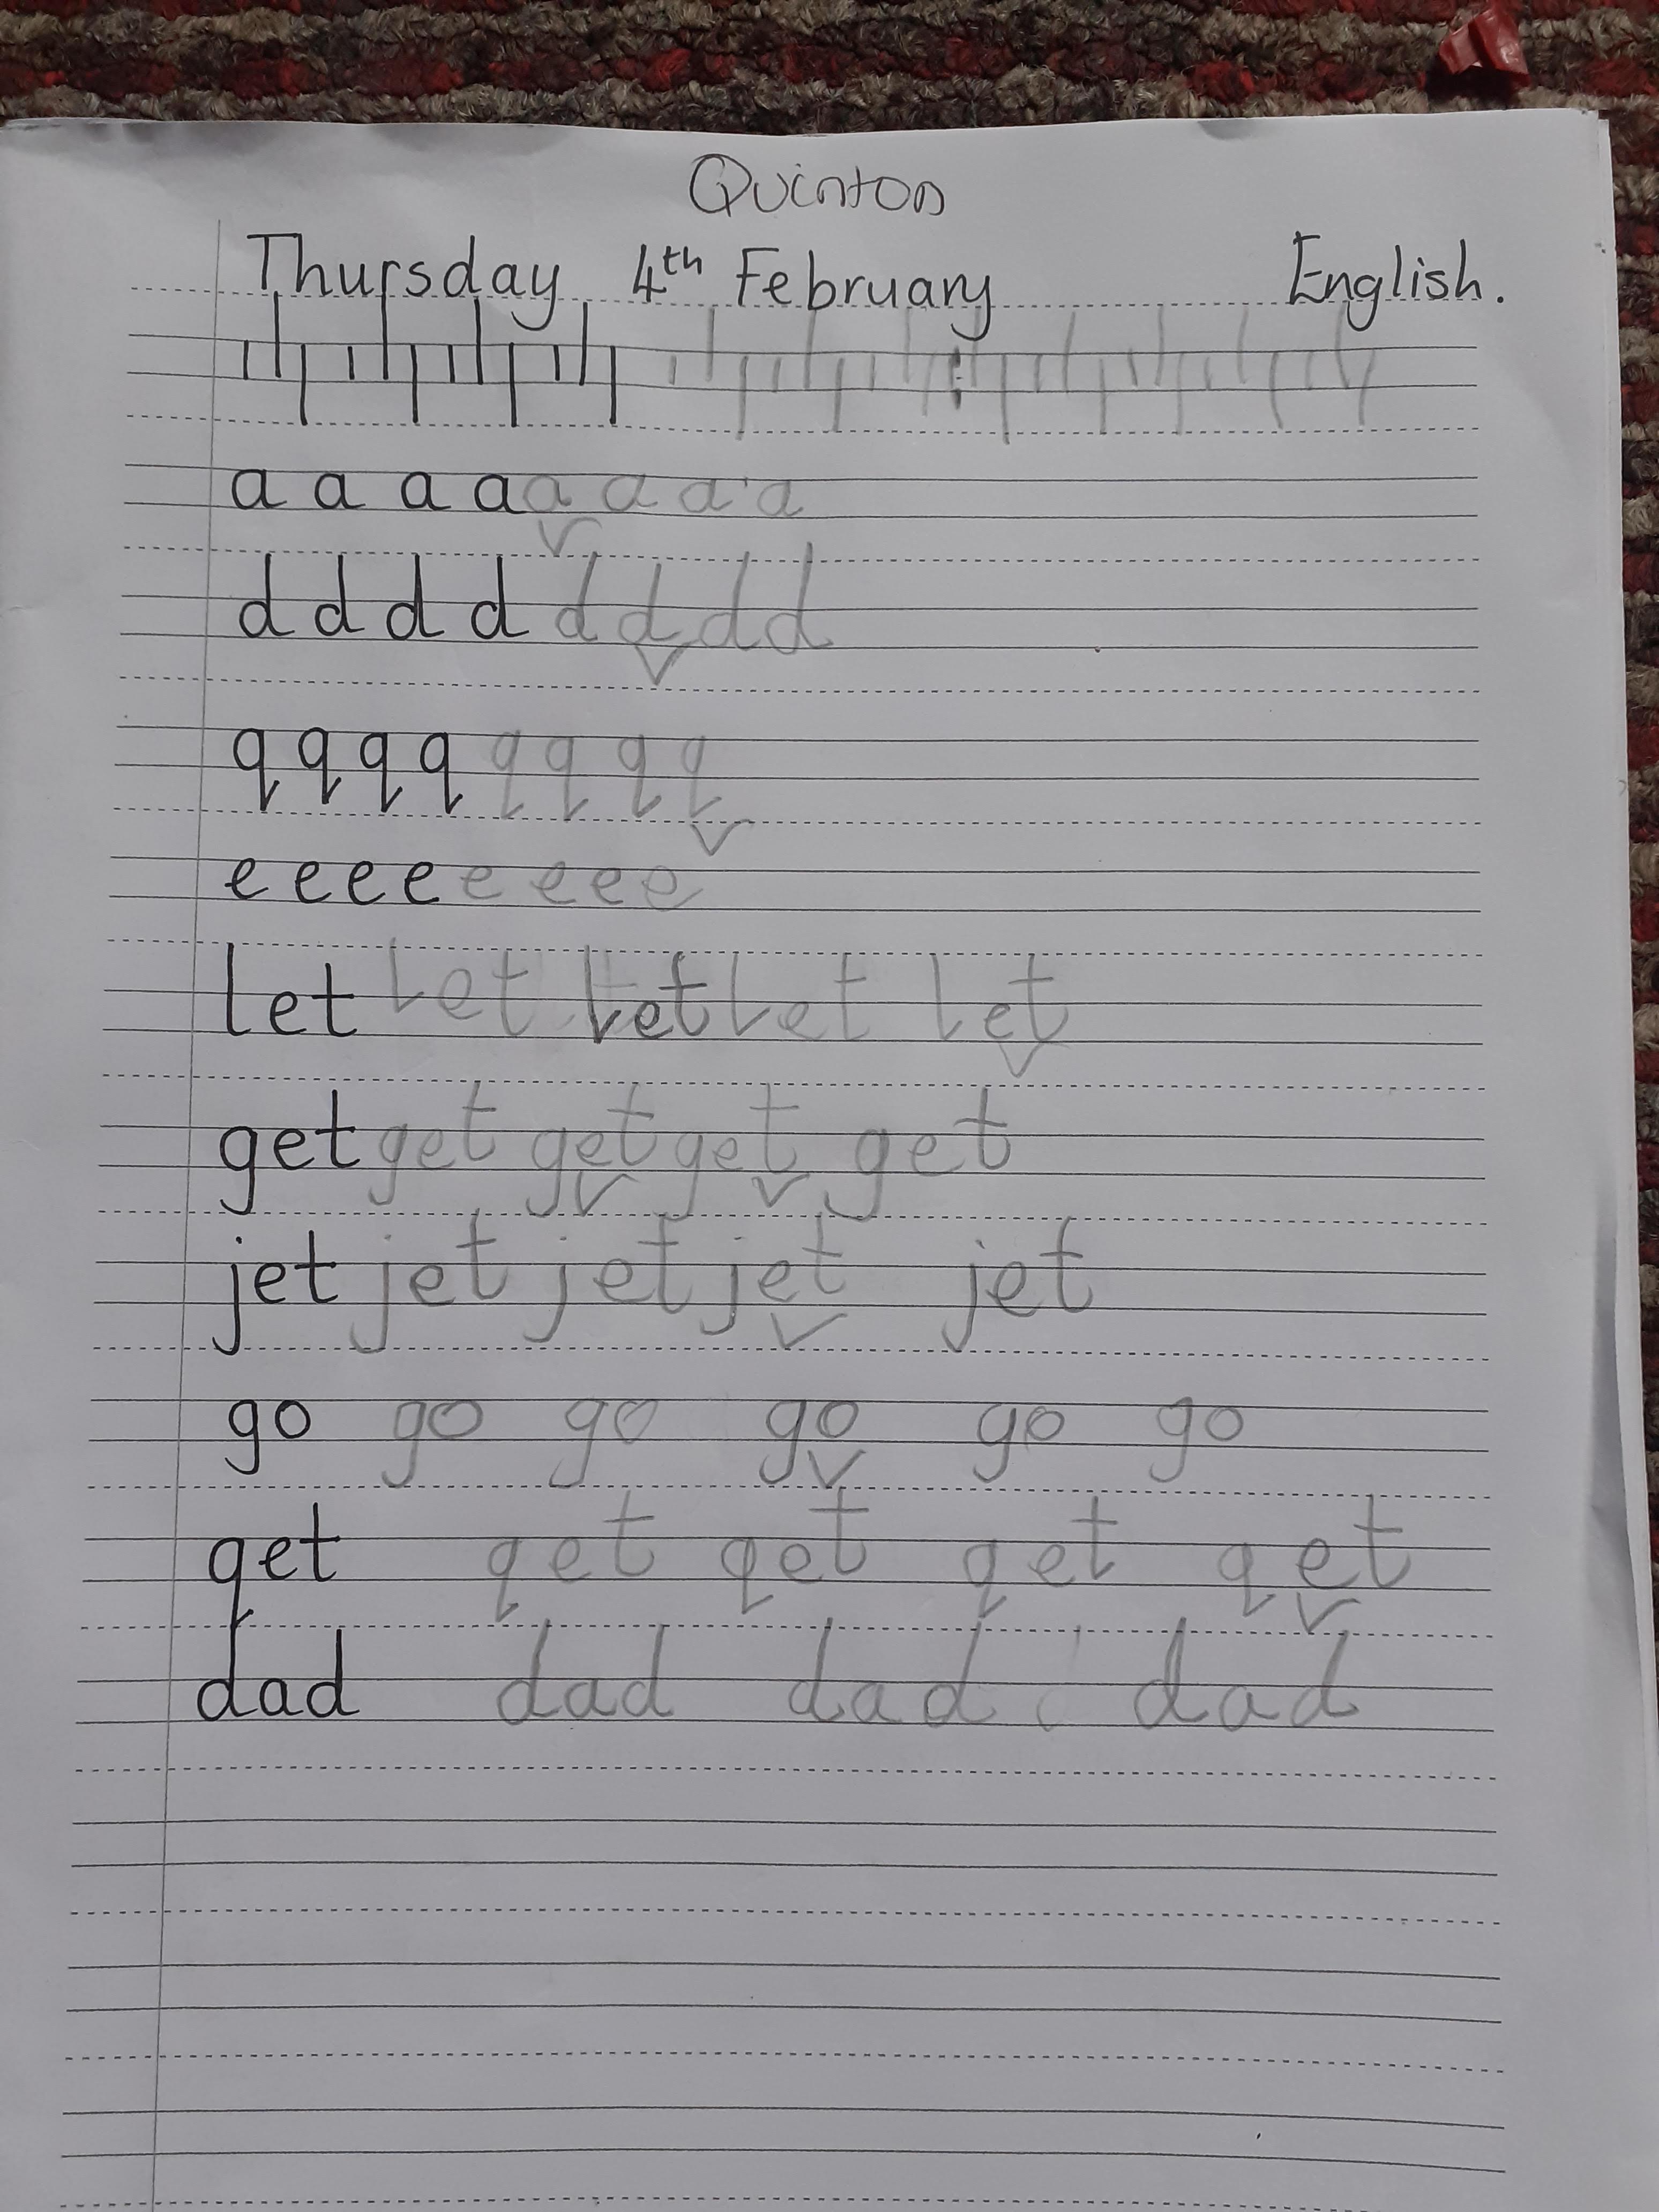 Quinton
Thursday 4th February English.
a a a a a a a a
d d d d d d d d
q q q q q q q q
e e e e e e e e
let let let let let
get get get get get
jet jet jet jet jet
go go go go go go
qet qet qet qet qet
dad dad dad dad